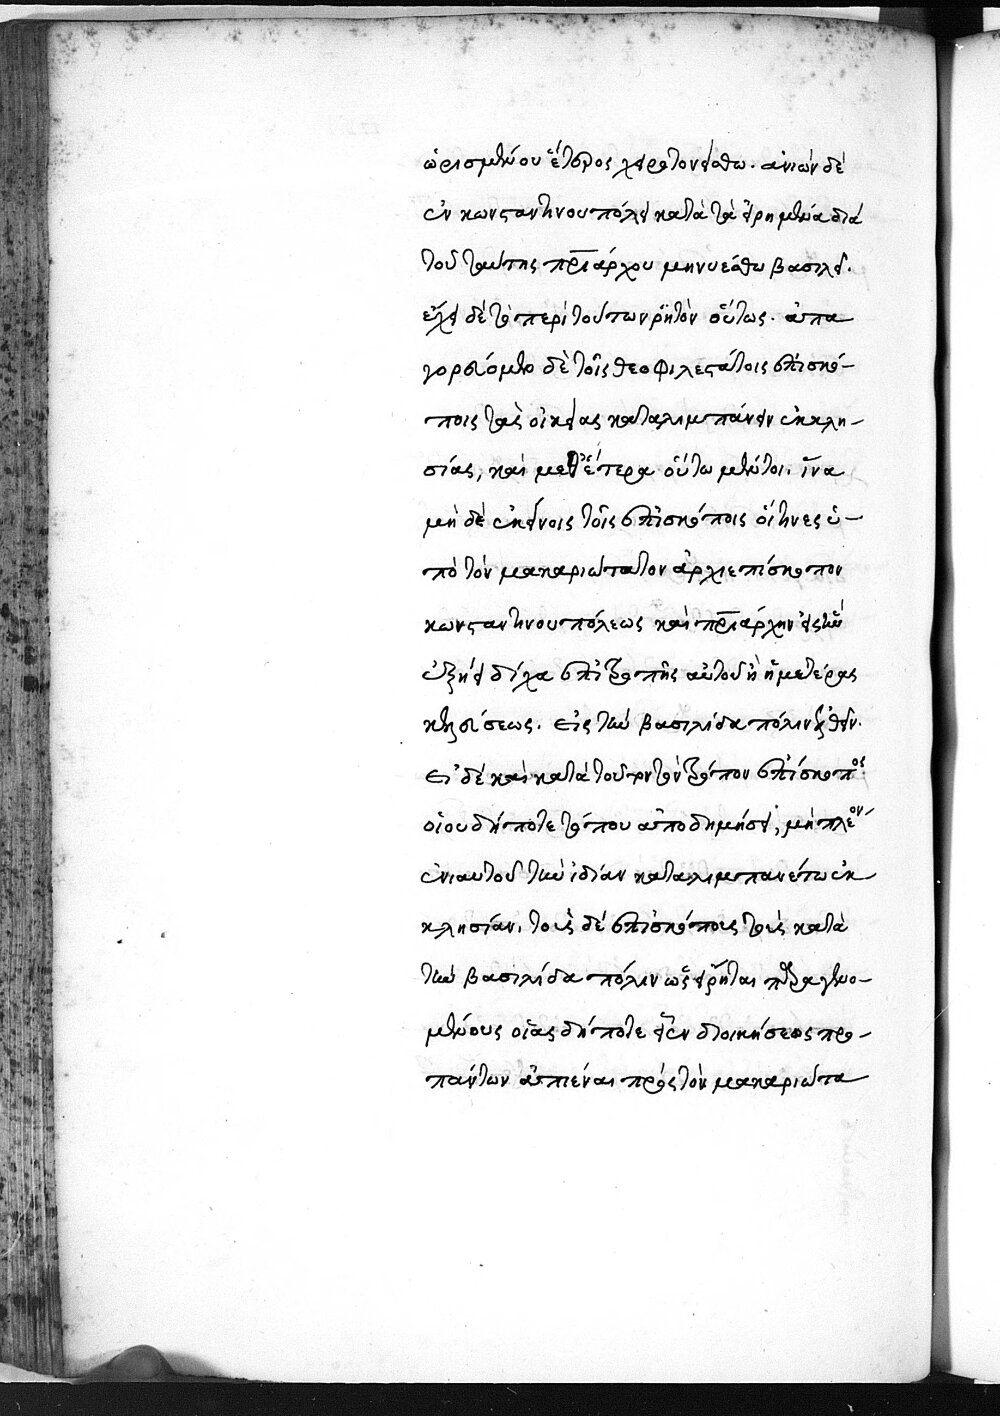 ὡρισμένου ἕτερος χειροτονείσθω. ἀνιὼν δὲ
ἐν κωνσταντινουπόλει κατὰ τὰ εἰρημένα διὰ
τοῦ ταύτης πριάρχου μηνυέσθω βασιλεῖ.
εἶχε δὲ τὸ περὶ τούτων ῥητὸν οὕτως. ἀπα
γορεύομεν δὲ τοῖς θεοφιλεστάτοις ἐπισκό-
ποις τὰς οἰκείας καταλιμπάνειν ἐκκλη-
σίας, καὶ μεθ' ἕτερα οὕτω μέντοι. ἵνα
μὴ δὲ ἐκείνοις τοῖς ἐπισκόποις οἵτινες ὑ-
πὸ τὸν μακαριώτατον ἀρχιεπίσκοπον
κωνσταντινουπόλεως καὶ πριάρχην εἰσὶν
ἐξῇ δίχα ἐπιτροπῆς αὐτοῦ ἢ ἡμετέρας
κελεύσεως. εἰς τὴν βασιλίδα πόλιν ἐλθεῖν.
εἰ δὲ καὶ κατὰ τοῦτον τὸν τρόπον ἐπίσκοπος
οἱουδήποτε τόπου ἀποδημήσει, μὴ πλέον
ἐνιαυτοῦ τὴν ἰδίαν καταλιμπανέτω ἐκ-
κλησίαν. τοὺς δὲ ἐπισκόπους τοὺς κατὰ
τὴν βασιλίδα πόλιν ὡς εἴρηται παραγενο-
μένους οἵας δήποτε εἶεν διοικήσεως προ-
πάντων ἀπιέναι πρὸς τὸν μακαριώτα